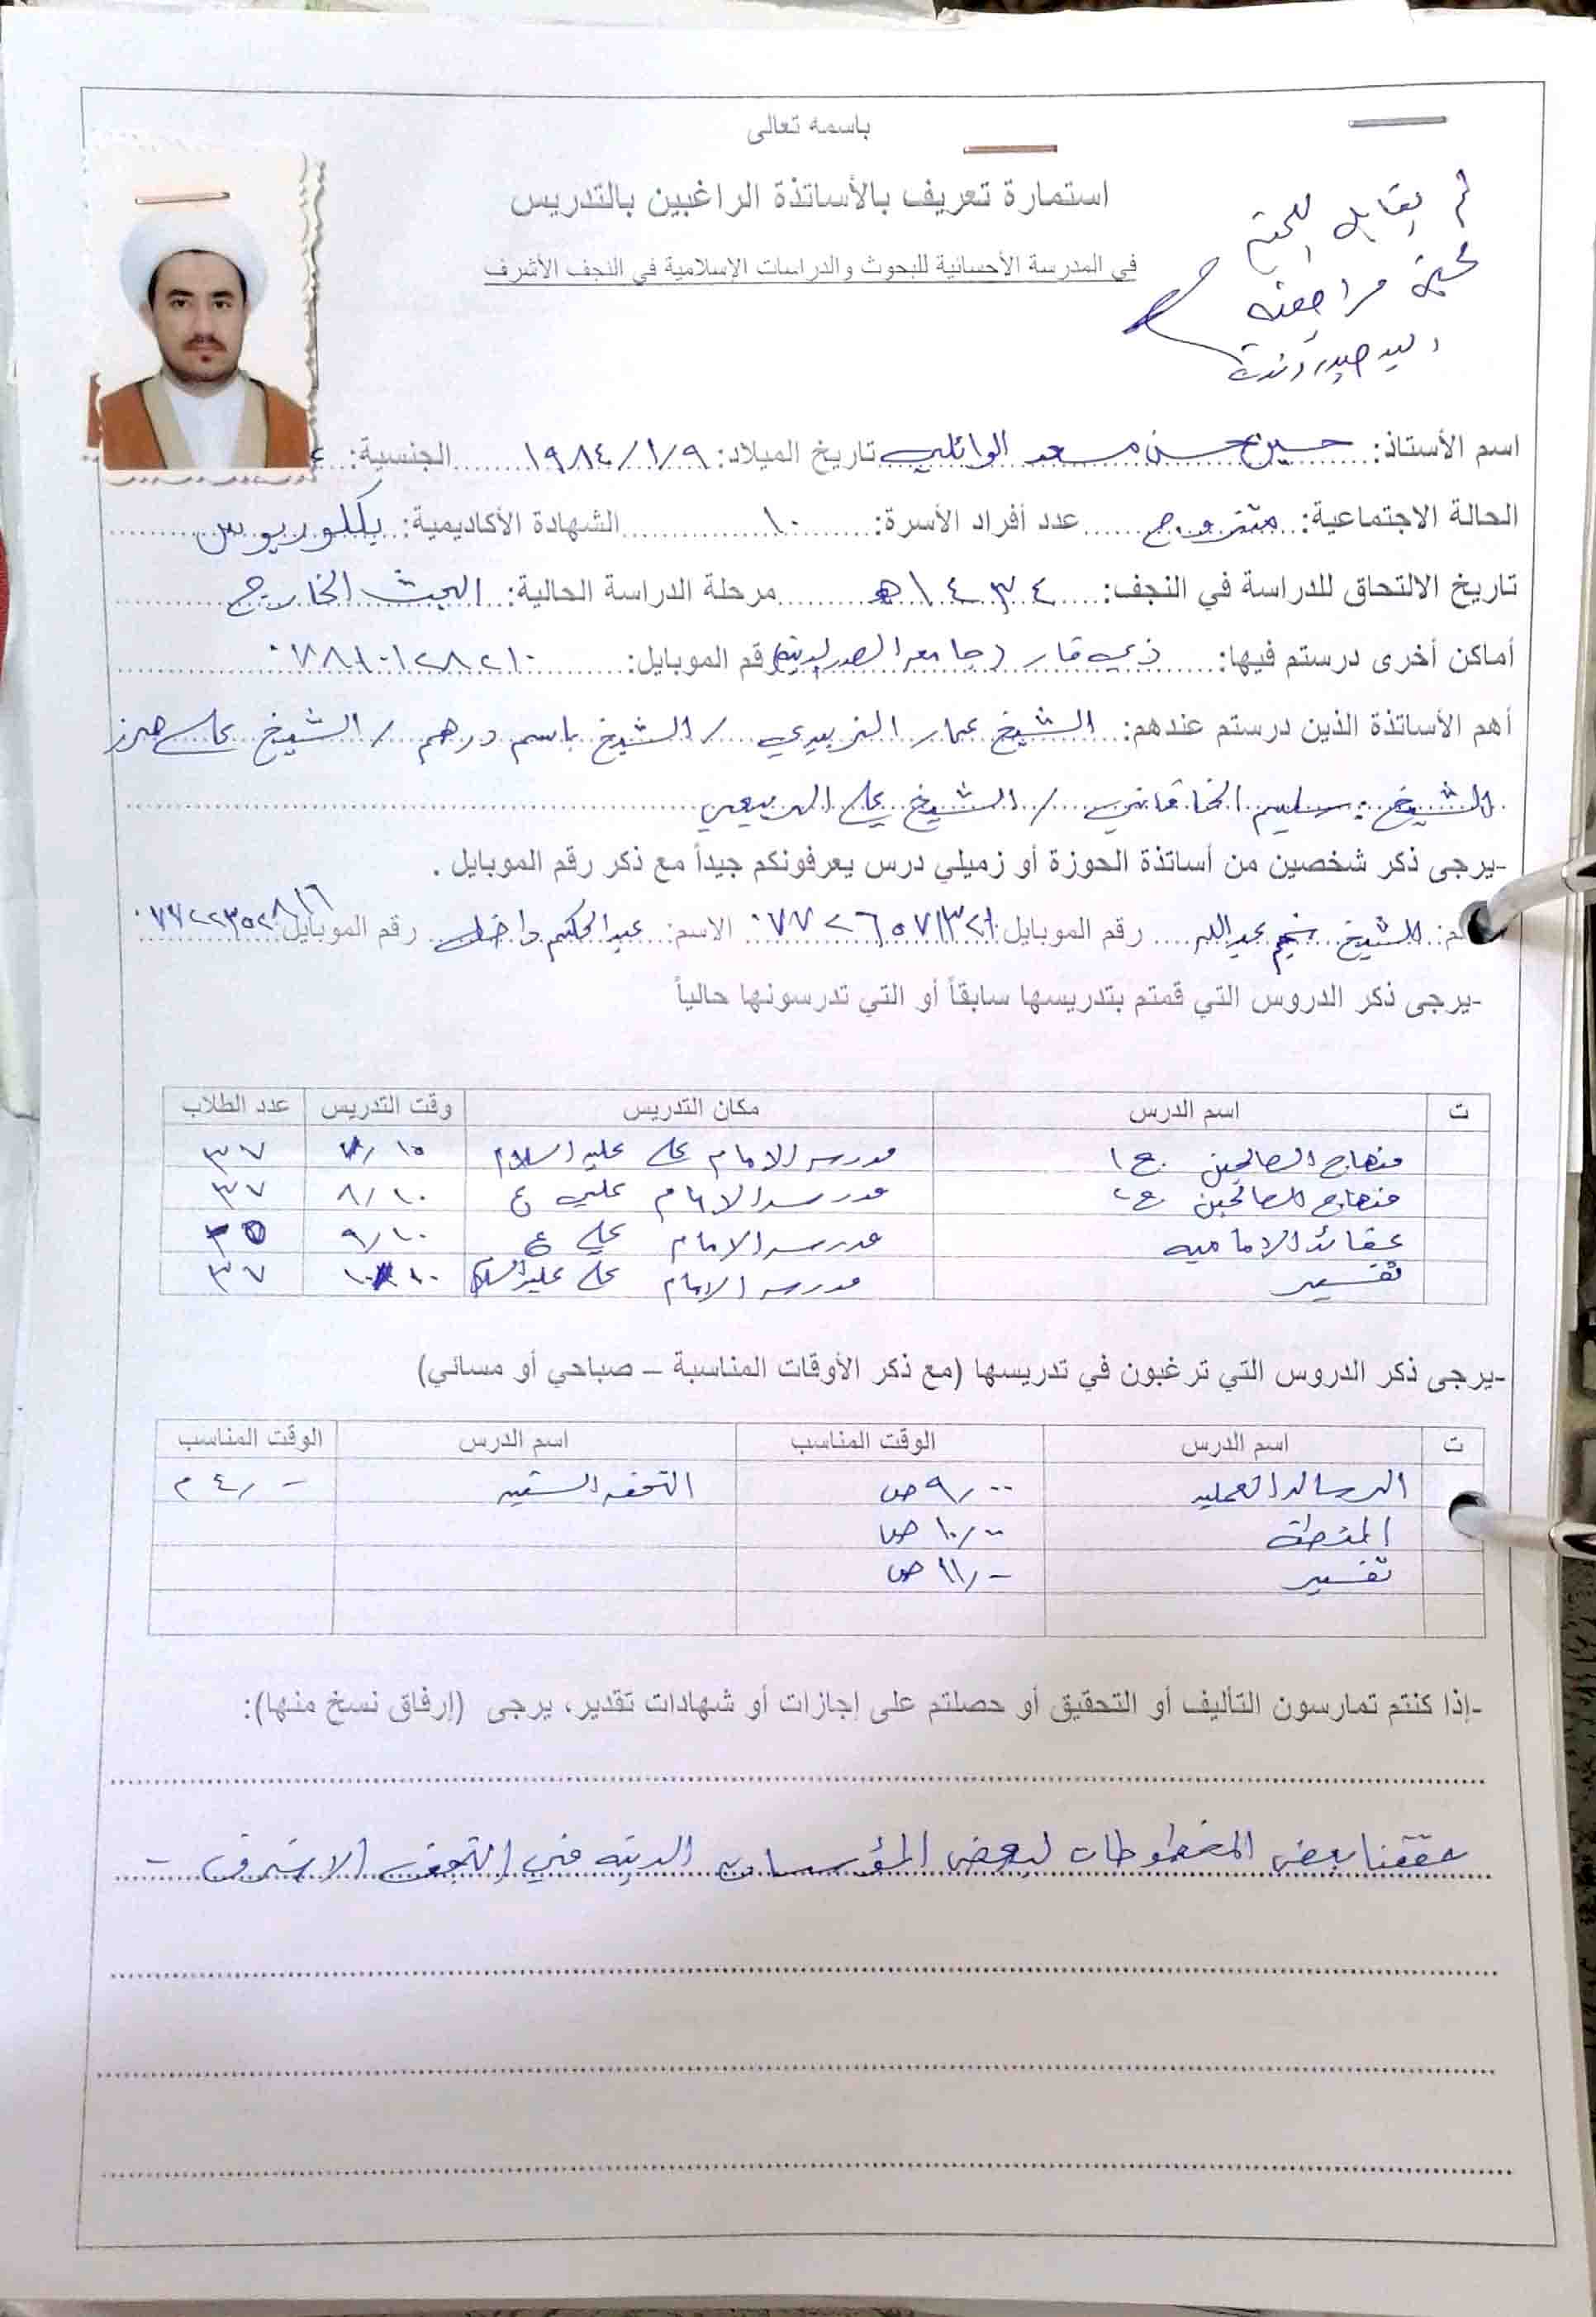 باسمه تعالى
استمارة تعريف بالأساتذة الراغبين بالتدريس
في المدرسة الأحسائية للبحوث والدراسات الإسلامية في النجف الأشرف
لم يقابل
مراجعته
السيد حيدر
اسم الأستاذ: حسين حسن مسعد الوائلي تاريخ الميلاد: ١٩٨٤/١/٩ الجنسية: ع
الحالة الاجتماعية: متزوج عدد أفراد الأسرة: ١٠ الشهادة الأكاديمية: بكلوريوس
تاريخ الالتحاق للدراسة في النجف: ١٤٣٤هـ مرحلة الدراسة الحالية: البحث الخارج
أماكن أخرى درستم فيها: ذي قار (جامعة الصدر الدينية) رقم الموبايل:
أهم الأساتذة الذين درستم عندهم: الشيخ عمار الزبيدي / الشيخ باسم درهم / الشيخ علي
الشيخ سليم الخاقاني / الشيخ علي الربيعي
-يرجى ذكر شخصين من أساتذة الحوزة أو زميلي درس يعرفونكم جيداً مع ذكر رقم الموبايل .
الشيخ نجم عبدالله رقم الموبايل: الاسم: عبدالحكيم رقم الموبايل:
-يرجى ذكر الدروس التي قمتم بتدريسها سابقاً أو التي تدرسونها حالياً
ت اسم الدرس مكان التدريس وقت التدريس عدد الطلاب
منهاج الصالحين ج١ مدرسه الامام علي عليه السلام ٣٧
منهاج الصالحين ج٢ مدرسه الامام علي ع ٨/١٠ ٣٧
عقائد الاماميه مدرسه الامام علي ع ٩/١٠
تفسير مدرسه الامام علي عليه السلام ٣٧
-يرجى ذكر الدروس التي ترغبون في تدريسها (مع ذكر الأوقات المناسبة – صباحي أو مسائي)
ت اسم الدرس الوقت المناسب اسم الدرس الوقت المناسب
الرساله العمليه ٩/٠٠ ص التحفه السنيه ٤/٠ م
المنطق ١٠/٠٠ ص
تفسير ١١/٠ ص
-إذا كنتم تمارسون التأليف أو التحقيق أو حصلتم على إجازات أو شهادات تقدير، يرجى (إرفاق نسخ منها):
حققنا بعض المخطوطات لبعض المؤسسات الدينيه في النجف الاشرف